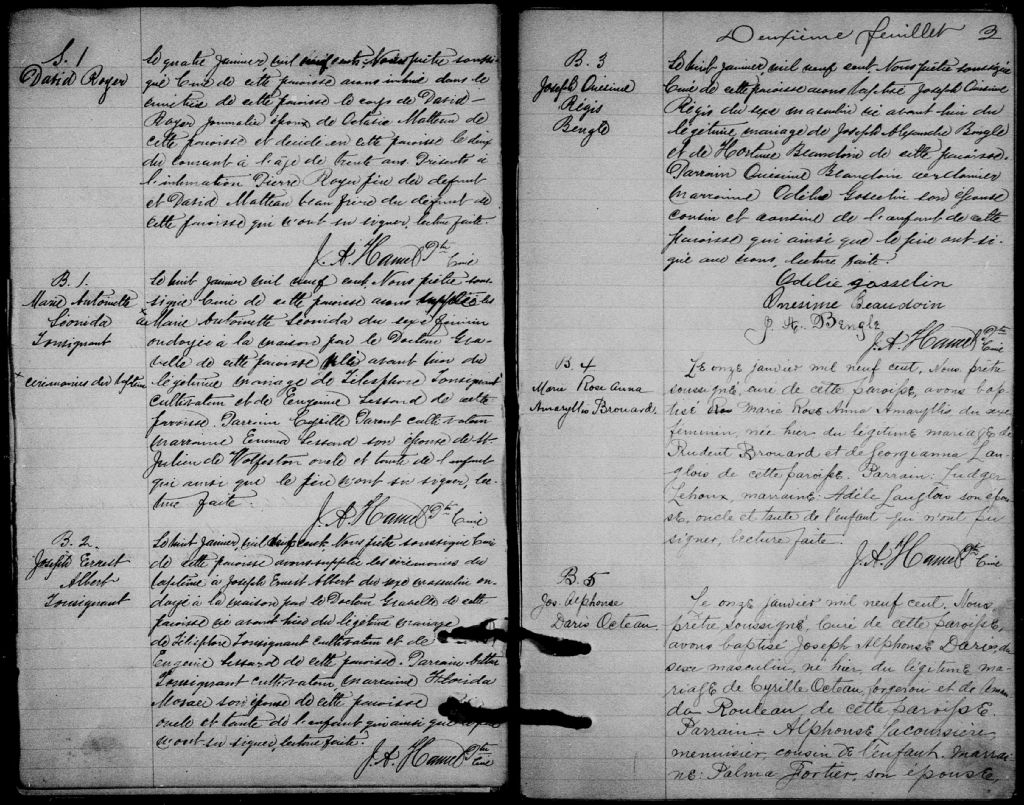 S. 1
David Royer
Le quatre janvier mil neuf cent Nous prêtre soussi-
gné Curé de cette paroisse avons inhumé dans le
cimetière de cette paroisse le corps de David
Royer journalier époux de Octavie Matteau de
cette paroisse et décédé en cette paroisse le deux
du courant à l'âge de trente ans. Présents à
l'inhumation Pierre Royer père du défunt
et David Matteau beau frère du défunt de
cette paroisse qui n'ont su signer, lecture faite.
J. A. Hamel Ptre
Curé
B. 1.
Marie Antoinette
Léonida
Tousignant
x cérémonies du baptême
Le huit janvier mil neuf cent Nous prêtre sous-
signé Curé de cette paroisse avons suppléé les
x à Marie Antoinette Léonida du sexe féminin
ondoyée à la maison par le Docteur Gra-
velle de cette paroisse née avant hier du
légitime mariage de Télesphore Tousignant
cultivateur et de Eugénie Lessard de cette
paroisse. Parrain Cyrille Parent cultivateur
marraine Emma Lessard son épouse de St
Julien de Wolfeston oncle et tante de l'enfant
qui ainsi que le père n'ont su signer, lec-
ture faite.
J. A. Hamel Ptre Curé
B. 2.
Joseph Ernest
Albert
Tousignant
Le huit Janvier, mil neuf cent Nous prêtre soussigné Curé
de cette paroisse avons suppléé les cérémonies du
baptême à Joseph Ernest Albert du sexe masculin on-
doyé à la maison par le Docteur Gravelle de cette
paroisse né avant hier du légitime mariage
de Télesphore Tousignant cultivateur et de
Eugénie Lessard de cette paroisse. Parrain
Tousignant cultivateur, marraine
son épouse de cette paroisse
oncle et tante de l'enfant qui ainsi que le père
n'ont su signer, lecture faite.
J. A. Hamel Ptre
Curé
Deuxième feuillet 2
B. 3
Joseph Onésime
Régis
Bengle
Le huit janvier mil neuf cent. Nous prêtre soussigné
Curé de cette paroisse avons baptisé Joseph Onésime
Régis du sexe masculin né avant hier du
légitime mariage de Joseph Alexandre Bengle
et de Hortense Beaudoin de cette paroisse.
Parrain Onésime Beaudoin cordonnier
marraine Odélie Gosselin son épouse
cousin et cousine de l'enfant de cette
paroisse qui ainsi que le père ont si-
gné avec nous, lecture faite.
Odélie gosselin
Onesime Beaudoin
J. A. Bengle
J. A. Hamel Ptre
Curé
B. 4
Marie Rose Anna
Amaryllis Brouard.
Le onze janvier mil neuf cent. Nous prêtre
soussigné, curé de cette paroisse, avons bap-
tisé Marie Rose Anna Amaryllis, du sexe
féminin, née hier du légitime mariage de
Prudent Brouard et de Georgianna Lan-
glois de cette paroisse. Parrain: Ludger
Lehoux, marraine: Adèle Langlois son épou-
se, oncle et tante de l'enfant qui n'ont pu
signer, lecture faite.
J. A. Hamel Ptre
Curé
B. 5
Jos. Alphonse
Daris Octeau.
Le onze janvier mil neuf cent. Nous,
prêtre soussigné, Curé de cette paroisse,
avons baptisé Joseph Alphonse Daris du
sexe masculin, né hier, du légitime ma-
riage de Cyrille Octeau, forgeron et de Aman-
da Rouleau, de cette paroisse.
Parrain: Alphonse Lacoursière,
menuisier, cousin de l'enfant. Marrai-
ne: Palma Fortier, son épouse,